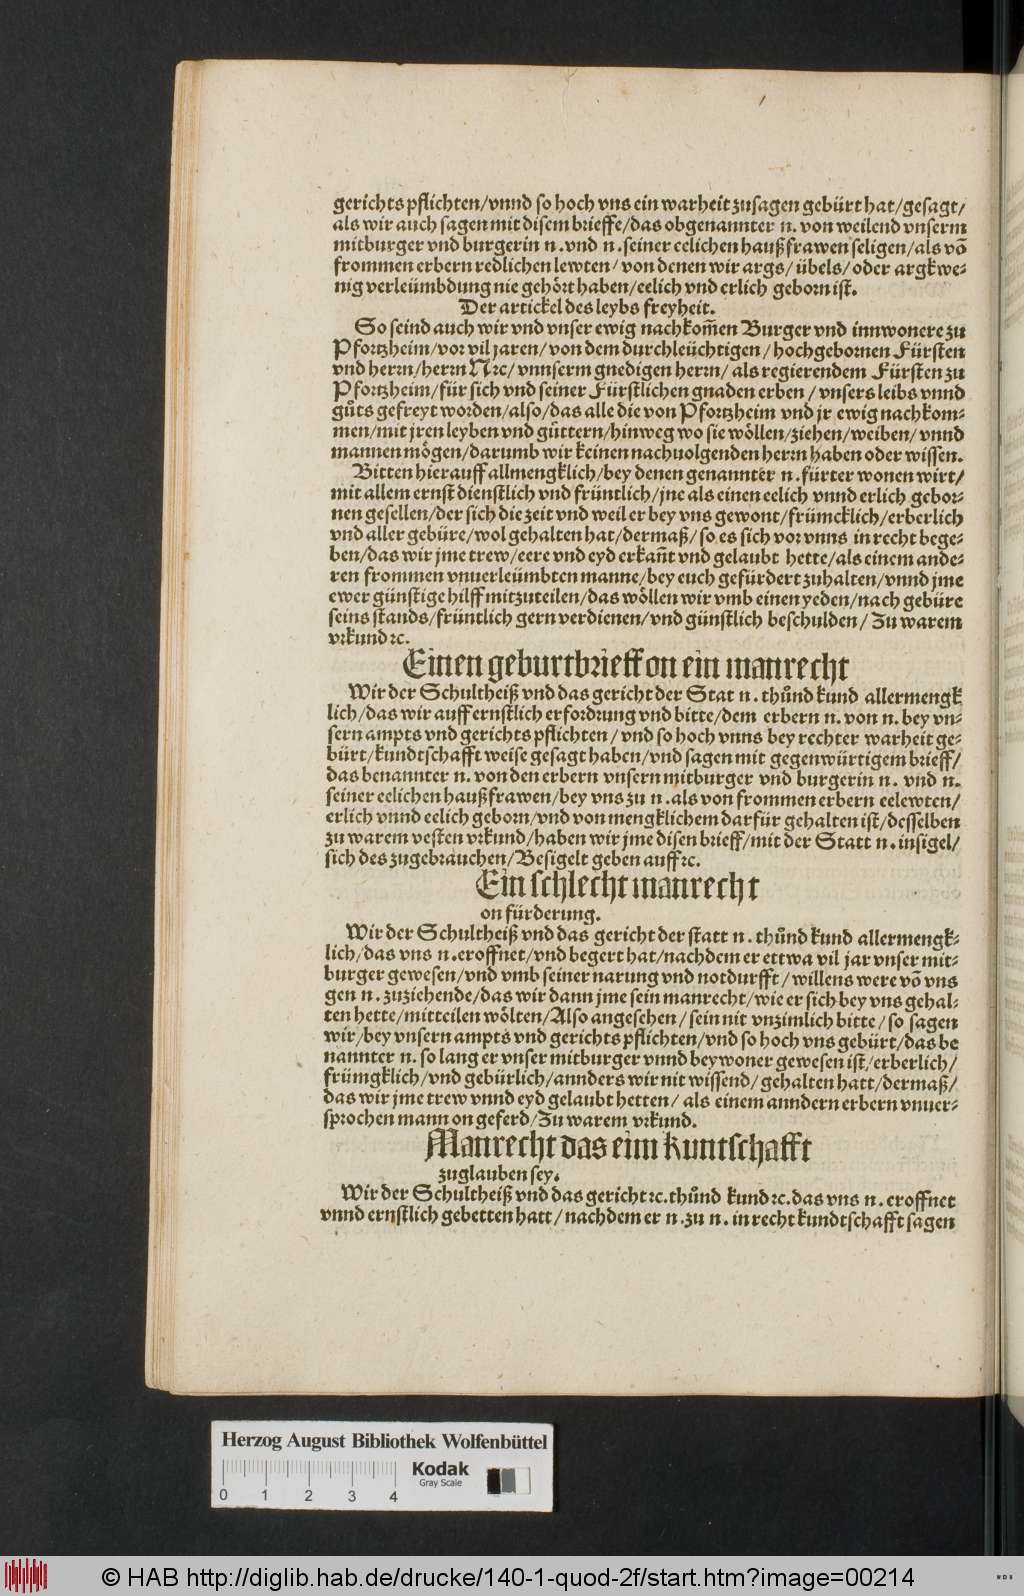 gerichts pflichten/vnnd so hoch vns ein warheit zusagen gebürt hat/gesagt/
als wir auch sagen mit disem brieffe/das obgenannter n. von weilend vnserm
mitburger vnd burgerin n. vnd n. seiner eelichen haußfrawen seligen/als võ
frommen erbern redlichen lewten/ von denen wir args/ übels/ oder argkwe-
nig verleümbdung nie gehört haben/eelich vnd erlich geborn ist.
Der artickel des leybs freyheit.
So seind auch wir vnd vnser ewig nachkom̃en Burger vnd innwonere zu
Pfortzheim/vor vil jaren/von dem durchleüchtigen/hochgebornen Fürsten
vnd herrn/herrn Nꝛc/ vnnserm gnedigen herrn/ als regierendem Fürsten zu
Pfortzheim/für sich vnd seiner Fürstlichen gnaden erben/ vnsers leibs vnnd
gůts gefreyt worden/also/das alle die von Pfortzheim vnd jr ewig nachkom-
men/mit jren leyben vnd gůttern/hinweg wo sie wöllen/ziehen/weiben/vnnd
mannen mögen/darumb wir keinen nachuolgenden herrn haben oder wissen.
Bitten hierauff allmengklich/bey denen genannter n. fürter wonen wirt/
mit allem ernst dienstlich vnd früntlich/jne als einen eelich vnnd erlich gebor-
nen gesellen/der sich die zeit vnd weil er bey vns gewont/frümcklich/erberlich
vnd aller gebüre/wol gehalten hat/dermaß/so es sich vor vnns in recht bege-
ben/das wir jme trew/eere vnd eyd erkañt vnd gelaubt hette/als einem ande-
ren frommen vnuerleümbten manne/bey euch gefürdert zuhalten/vnnd jme
ewer günstige hilff mitzuteilen/das wöllen wir vmb einen yeden/nach gebüre
seins stands/früntlich gern verdienen/vnd günstlich beschulden/ Zu warem
vrkund ꝛc.
Einen geburtbrieff on ein manrecht
Wir der Schultheiß vnd das gericht der Stat n. thůnd kund allermengk
lich/das wir auff ernstlich erfordrung vnd bitte/dem erbern n. von n. bey vn-
sern ampts vnd gerichts pflichten/ vnd so hoch vnns bey rechter warheit ge-
bürt/kundtschafft weise gesagt haben/vnd sagen mit gegenwürtigem brieff/
das benannter n. von den erbern vnsern mitburger vnd burgerin n. vnd n.
seiner eelichen haußfrawen/bey vns zu n. als von frommen erbern eelewten/
erlich vnnd eelich geborn/vnd von mengklichem darfür gehalten ist/desselben
zu warem vesten vrkund/haben wir jme disen brieff/mit der Statt n. insigel/
sich des zugebrauchen/Besigelt geben auff ꝛc.
Ein schlecht manrecht
on fürderung.
Wir der Schultheiß vnd das gericht der statt n. thůnd kund allermengk-
lich/das vns n. eroffnet/vnd begert hat/nachdem er ettwa vil jar vnser mit-
burger gewesen/vnd vmb seiner narung vnd notdurfft/ willens were võ vns
gen n. zuziehende/das wir dann jme sein manrecht/wie er sich bey vns gehal-
ten hette/mitteilen wölten/Also angesehen/ sein nit vnzimlich bitte/ so sagen
wir/bey vnsern ampts vnd gerichts pflichten/vnd so hoch vns gebürt/das be
nannter n. so lang er vnser mitburger vnnd beywoner gewesen ist/erberlich/
frümgklich/vnd gebürlich/annders wir nit wissend/gehalten hatt/dermaß/
das wir jme trew vnnd eyd gelaubt hetten/ als einem anndern erbern vnuer-
sprochen mann on geferd/Zu warem vrkund.
Manrecht das eim kuntschafft
zuglauben sey.
Wir der Schultheiß vnd das gericht ꝛc. thůnd kund ꝛc. das vns n. eroffnet
vnnd ernstlich gebetten hatt/ nachdem er n. zu n. in recht kundtschafft sagen
Herzog August Bibliothek Wolfenbüttel
Kodak
Gray Scale
0 1 2 3 4
© HAB http://diglib.hab.de/drucke/140-1-quod-2f/start.htm?image=00214